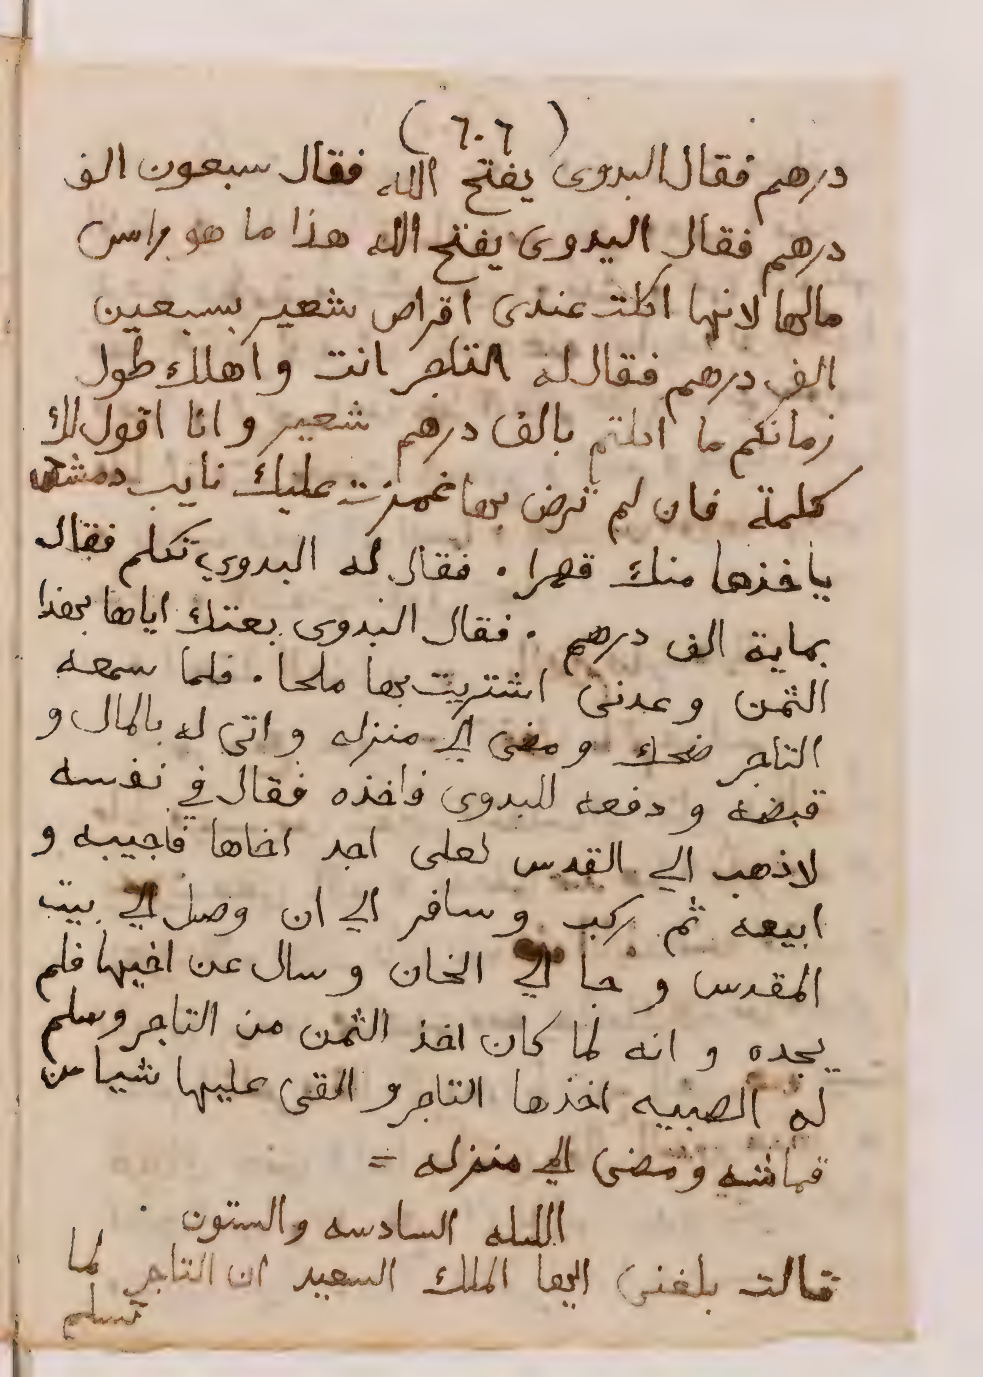 (٦٠٦)
درهم فقال البدوى يفتح الله فقال سبعون الف
درهم فقال البدوى يفتح الله هذا ما هو براس
مالها لانها اكلت عندى اقراص شعير بسبعين
الف درهم فقال له التاجر انت واهلك طول
زمانكم ما اكلتم بالف درهم شعير وانا اقول لك
كلمة فان لم ترض بها غمزت عليك نايب دمشق
ياخذها منك قهرا . فقال له البدوي تكلم فقال
بماية الف درهم . فقال البدوى بعتك اياها بهذا
الثمن وعدنى اشتريت بها ملحا . فلما سمعه
التاجر ضحك ومضى الى منزله واتى له بالمال و
قبضه ودفعه للبدوى فاخذه فقال في نفسه
لاذهب الي القدس لعلى اجد اخاها فاجيبه و
ابيعه ثم ركب وسافر الي ان وصل الي بيت
المقدس وجا الي الخان وسال عن اخيها فلم
يجده وانه لما كان اخذ الثمن من التاجر وسلم
له الصبيه اخذها التاجر والقى عليها شيا من
قماشه ومضى الي منزله =
الليله السادسه والستون
قالت بلغنى ايها الملك السعيد ان التاجر لما
تسلم